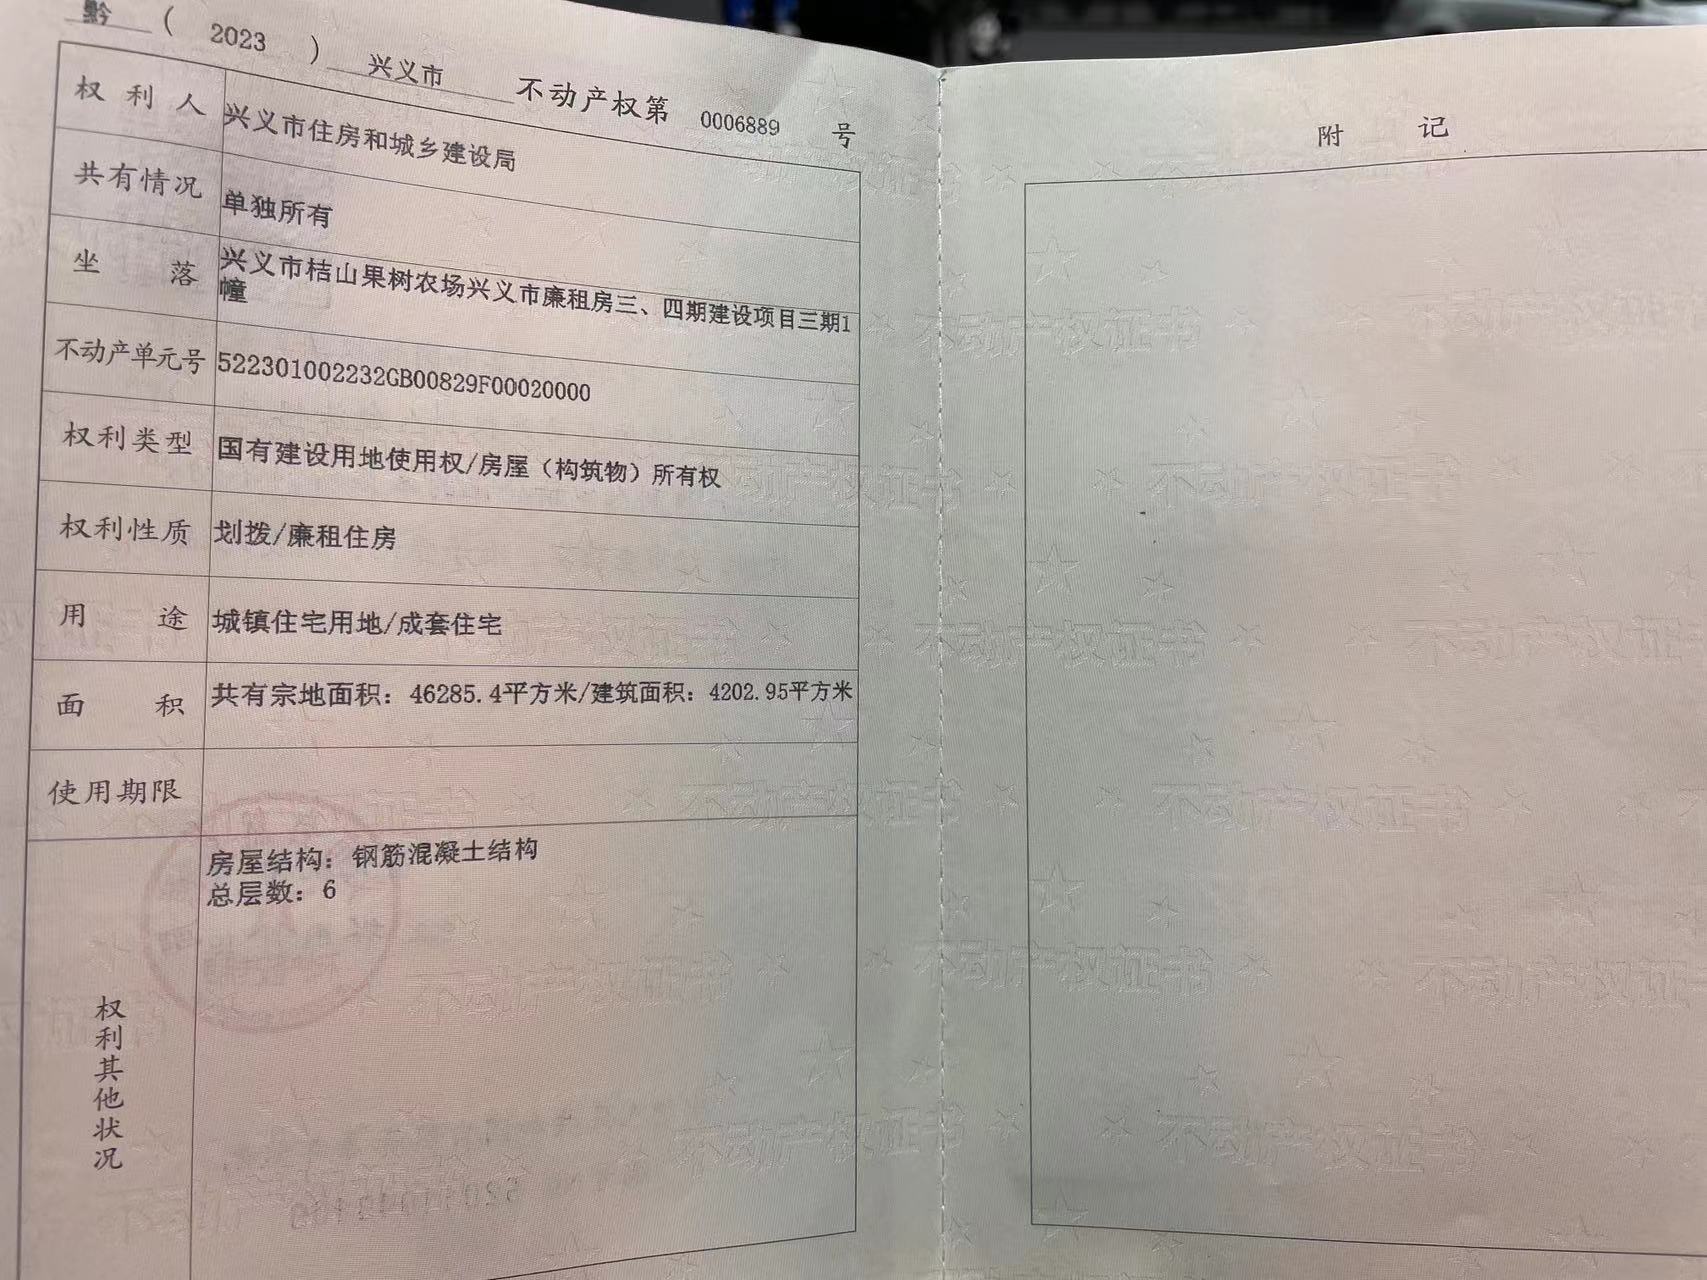 黔 ( 2023 ) 兴义市 不动产权第 0006889 号
权利人 兴义市住房和城乡建设局
共有情况 单独所有
坐落 兴义市桔山果树农场兴义市廉租房三、四期建设项目三期1
幢
不动产单元号 522301002232GB00829F00020000
权利类型 国有建设用地使用权/房屋（构筑物）所有权
权利性质 划拨/廉租住房
用途 城镇住宅用地/成套住宅
面积 共有宗地面积：46285.4平方米/建筑面积：4202.95平方米
使用期限
权利其他状况
房屋结构：钢筋混凝土结构
总层数：6
附记